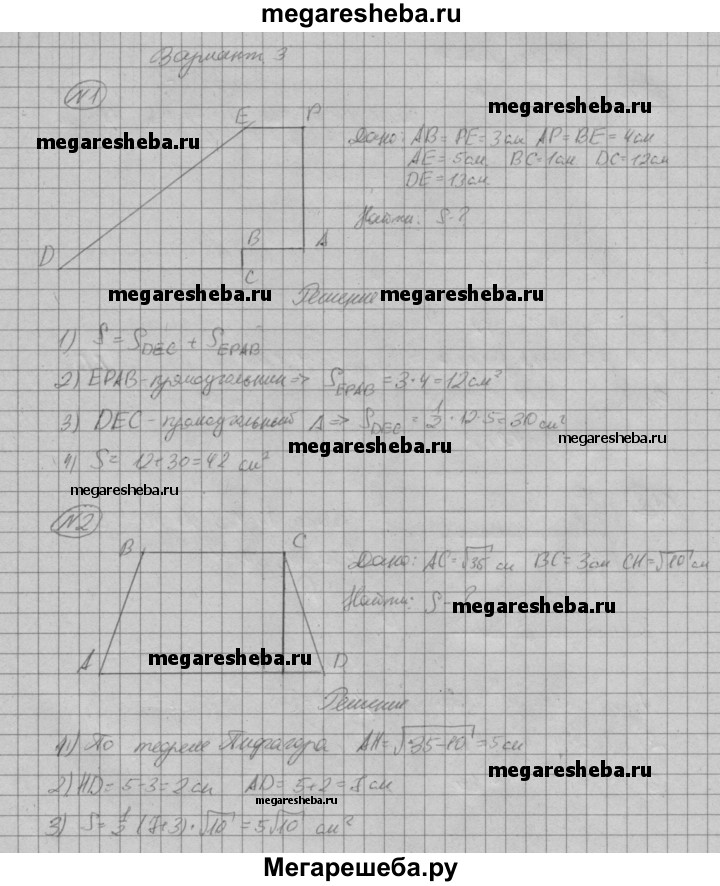 megaresheba.ru
Вариант 3
№1
megaresheba.ru
megaresheba.ru
E P
Дано: AB = PE = 3см AP = BE = 4см
AE = 5см BC = 1см DC = 12см
DE = 13см
Найти: S-?
B A
D
C
megaresheba.ru
Решение
megaresheba.ru
1) S = S_DEC + S_EPAB
2) EPAB - прямоугольник => S_EPAB = 3·4 = 12см²
3) DEC - прямоугольный Δ => S_DEC = 1/2 · 12·5 = 30см²
megaresheba.ru
megaresheba.ru
4) S = 12+30 = 42 см²
megaresheba.ru
№2
B C
Дано: AC = √35 см BC = 3см CH = √10 см
Найти: S-?
megaresheba.ru
A D
megaresheba.ru
Решение
1) По теореме Пифагора AH = √35-10 = 5см
megaresheba.ru
2) HD = 5-3 = 2см AD = 5+2 = 7см
megaresheba.ru
3) S = 1/2 (7+3)·√10 = 5√10 см²
megaresheba.ru
Мегарешеба.ру